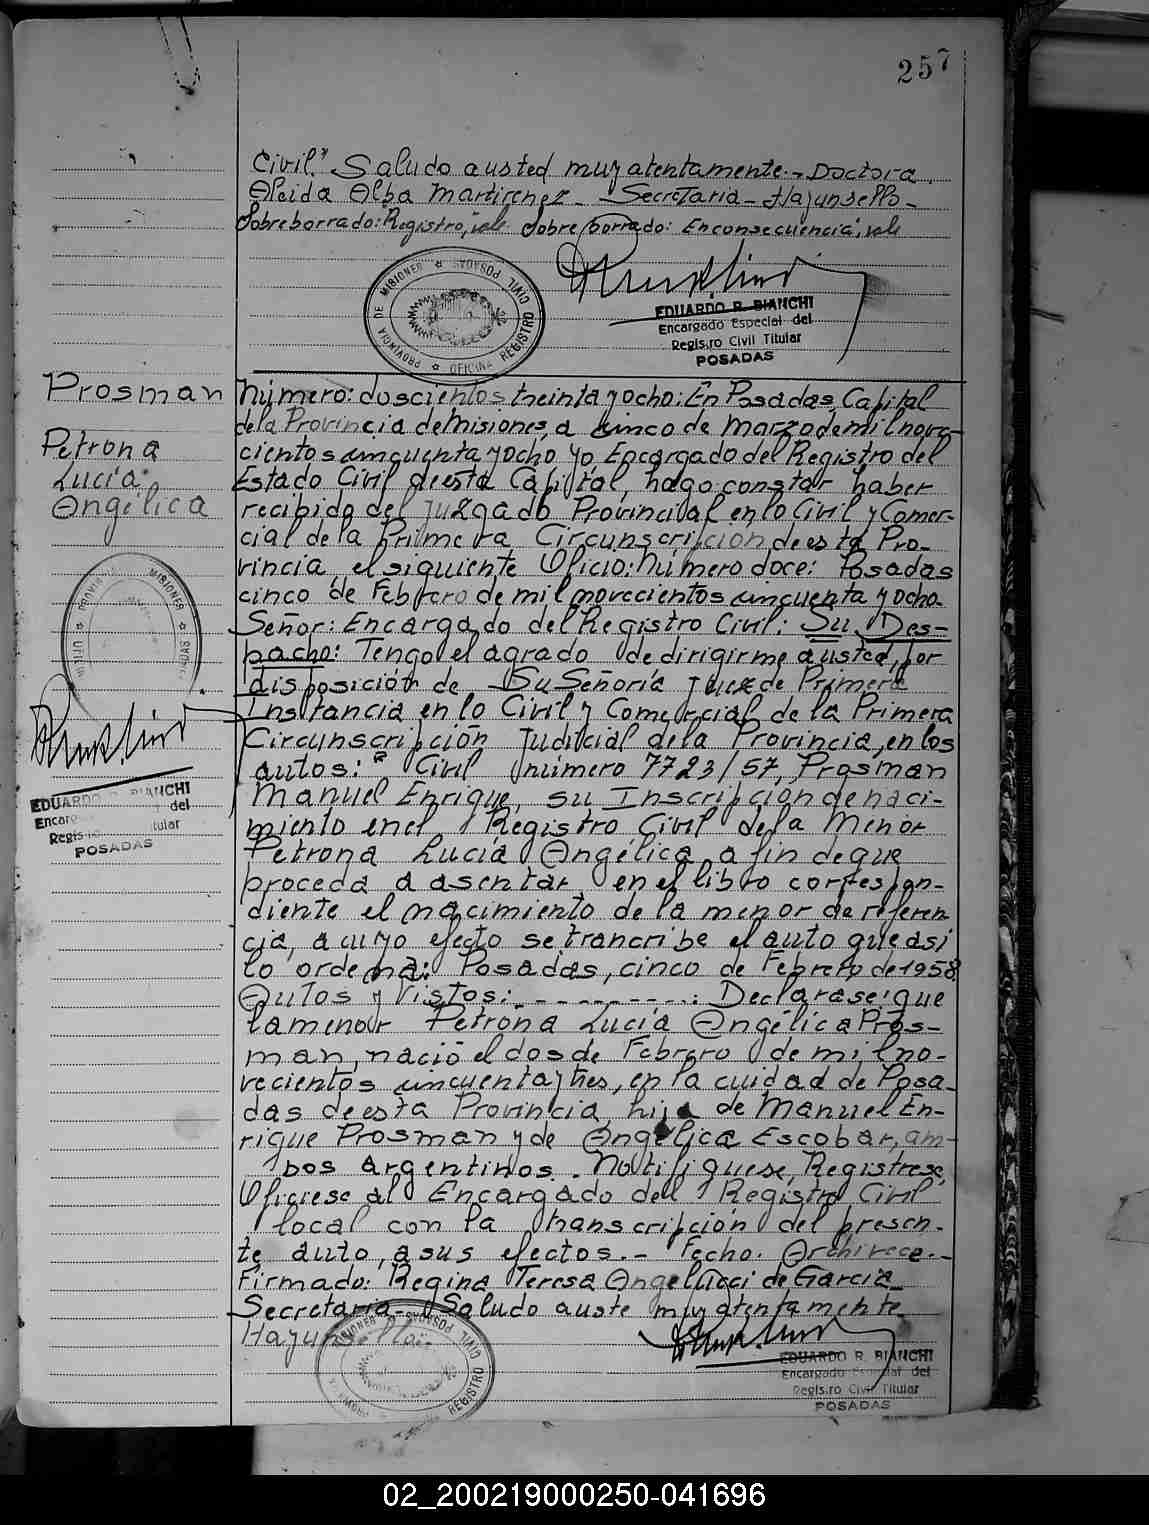 257
Civil". Saludo a usted muy atentamente.- Doctora
Aleida Alba Martinez - Secretaria - Hay un sello -
Sobreborrado: Registro, vale. Sobreborrado: En consecuencia, vale
PROVINCIA DE MISIONES ☆ POSADAS
OFICINA REGISTRO CIVIL
EDUARDO R. BIANCHI
Encargado Especial del
Regis.ro Civil Titular
POSADAS
Prosman
Petrona
Lucía
Angélica
Número: doscientos treinta y ocho: En Posadas, Capital
de la Provincia de Misiones, a cinco de Marzo de mil nove-
cientos cincuenta y ocho yo Encargado del Registro del
Estado Civil de esta Capital, hago constar haber
recibido del Juzgado Provincial en lo Civil y Comer-
cial de la Primera Circunscripción de esta Pro-
vincia, el siguiente Oficio: Número doce: Posadas
cinco de Febrero de mil novecientos cincuenta y ocho.
Señor: Encargado del Registro Civil: Su Des-
pacho: Tengo el agrado de dirigirme a usted, por
disposición de Su Señoría Juez de Primera
Instancia en lo Civil y Comercial de la Primera
Circunscripción Judicial de la Provincia, en los
autos: " Civil número 7723/57, Prosman
Manuel Enrique, su Inscripción de naci-
miento en el Registro Civil de la Menor
Petrona Lucía Angélica, a fin de que
proceda a asentar en el libro correspon-
diente el nacimiento de la menor de referen-
cia, a cuyo efecto se trancribe el auto que así
lo ordena: Posadas, cinco de Febrero de 1958.
Autos y Vistos: - - - - - - - - - : Declarase: que
la menor Petrona Lucía Angélica Pros-
man, nació el dos de Febrero de mil no-
vecientos cincuenta y tres, en la cuidad de Posa-
das de esta Provincia, hija de Manuel En-
rique Prosman y de Angélica Escobar, am-
bos argentinos. Notifiquese, Registrese,
Oficiese al Encargado del Registro Civil
local con la transcripción del presen-
te auto, a sus efectos.- Fecho. Archivese.-
Firmado: Regina Teresa Angelucci de Garcia
Secretaria - Saludo a uste muy atentamente
Hay un sello
MISIONES ☆ POSADAS
PROVINCIA
REGISTRO CIVIL
EDUARDO R. BIANCHI
Encargado Especial del
Regis.ro Civil Titular
POSADAS
PROVINCIA MISIONES ☆ POSADAS
EDUARDO R. BIANCHI
del
POSADAS
02_200219000250-041696